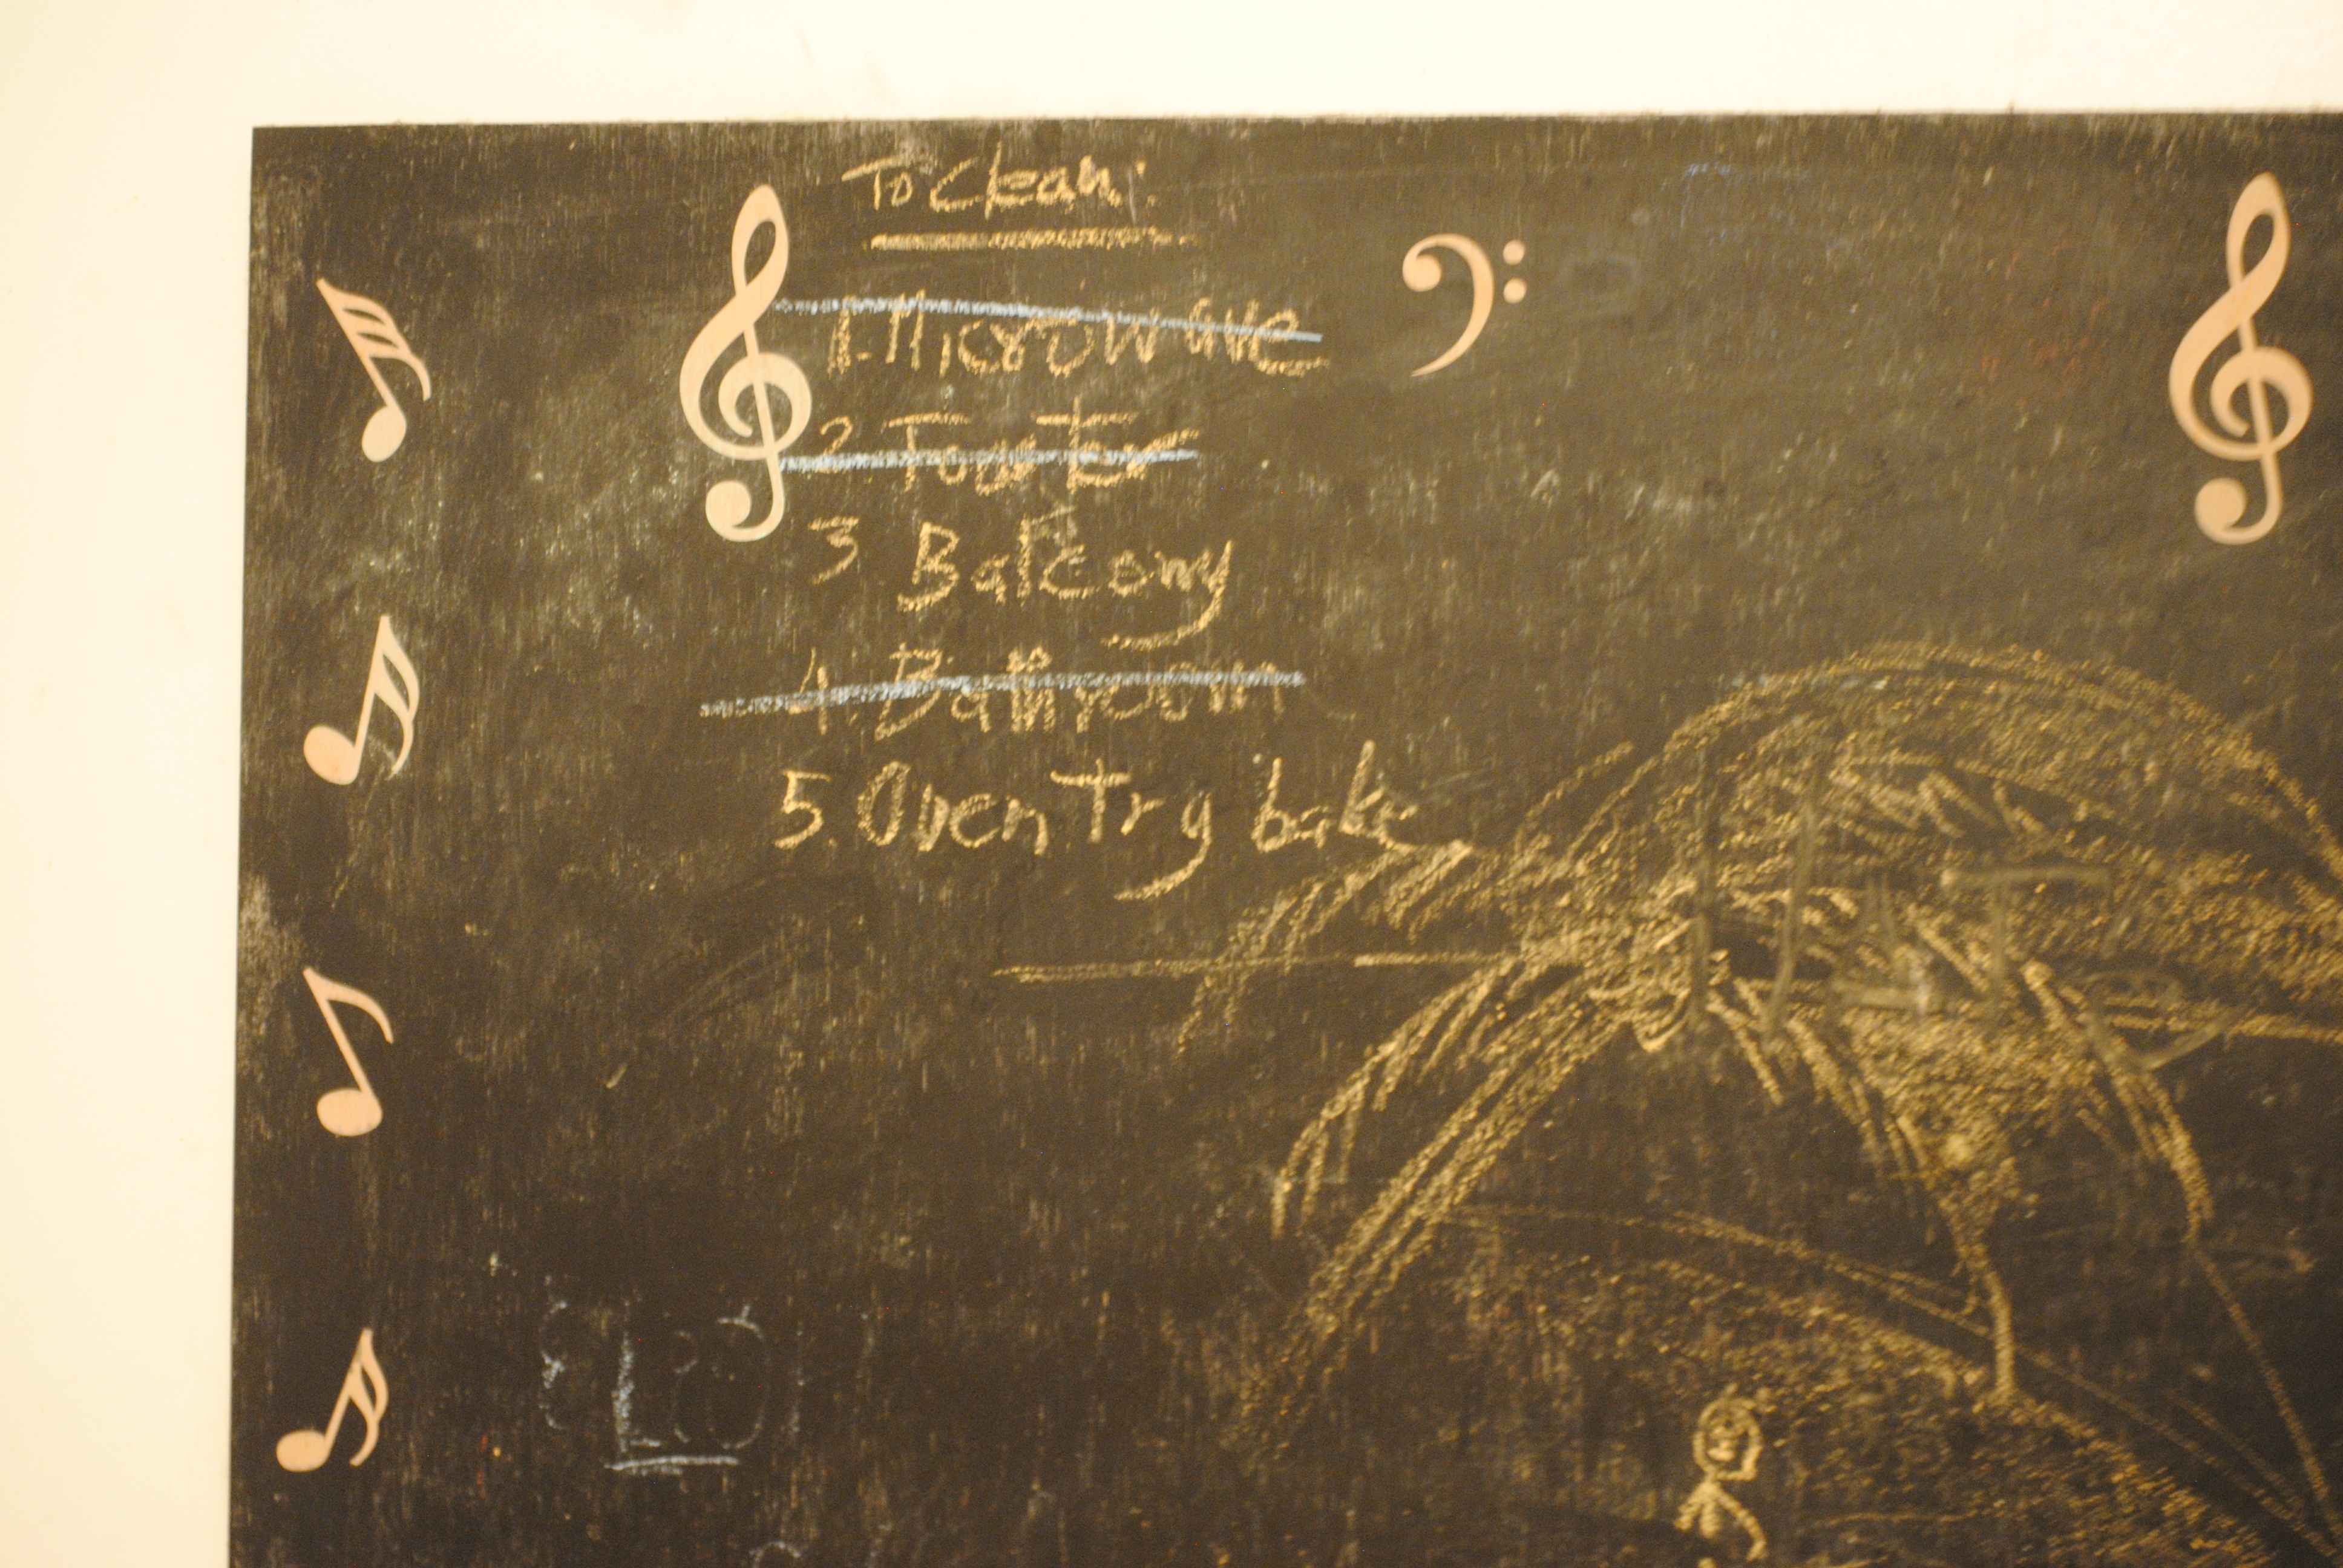 To Clean:
1. Microwave
2. Toaster
3 Balcony
4. Bathroom
5. Oven Try bake